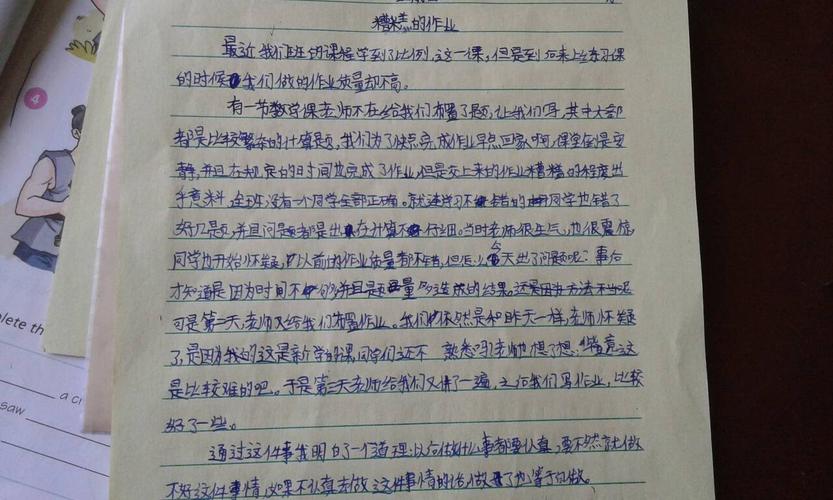 糟糕的作业
最近我们班的课程学到了比例,这一课,但是到后来上练习课
的时候我们做的作业质量却不高。
有一节数学课老师不在给我们布置了题,让我们写,其中大部
都是比较繁杂的计算题,我们为了快点完成作业早点回家啊,课堂倒是安
静,并且在规定的时间也完成了作业,但是交上来的作业糟糕的程度出
乎意料,全班没有一个同学全部正确。就连学习不错的同学也错了
好几题,并且问题都是出在计算不仔细。当时老师很生气,也很震惊,
同学也开始怀疑,以前的作业质量都不错,但怎么今天出了问题呢?事后
才知道是因为时间不够并且题量多造成的结果。还是因为方法不当呢
可是第二天,老师又给我们布置作业。我们依然是和昨天一样,老师怀疑
了,是因为我的这是新学的课,同学们还不 熟悉吗?老师想了想:“毕竟这
是比较难的吧。于是第三天老师给我们又讲了一遍,之后我们写作业,比较
好了一些。
通过这件事我明白了一个道理:以后做什么事都要认真,要不然就做
不好这件事情,如果不认真去做这件事情的话,做了也等于白做。
lete th
a ci
saw
4